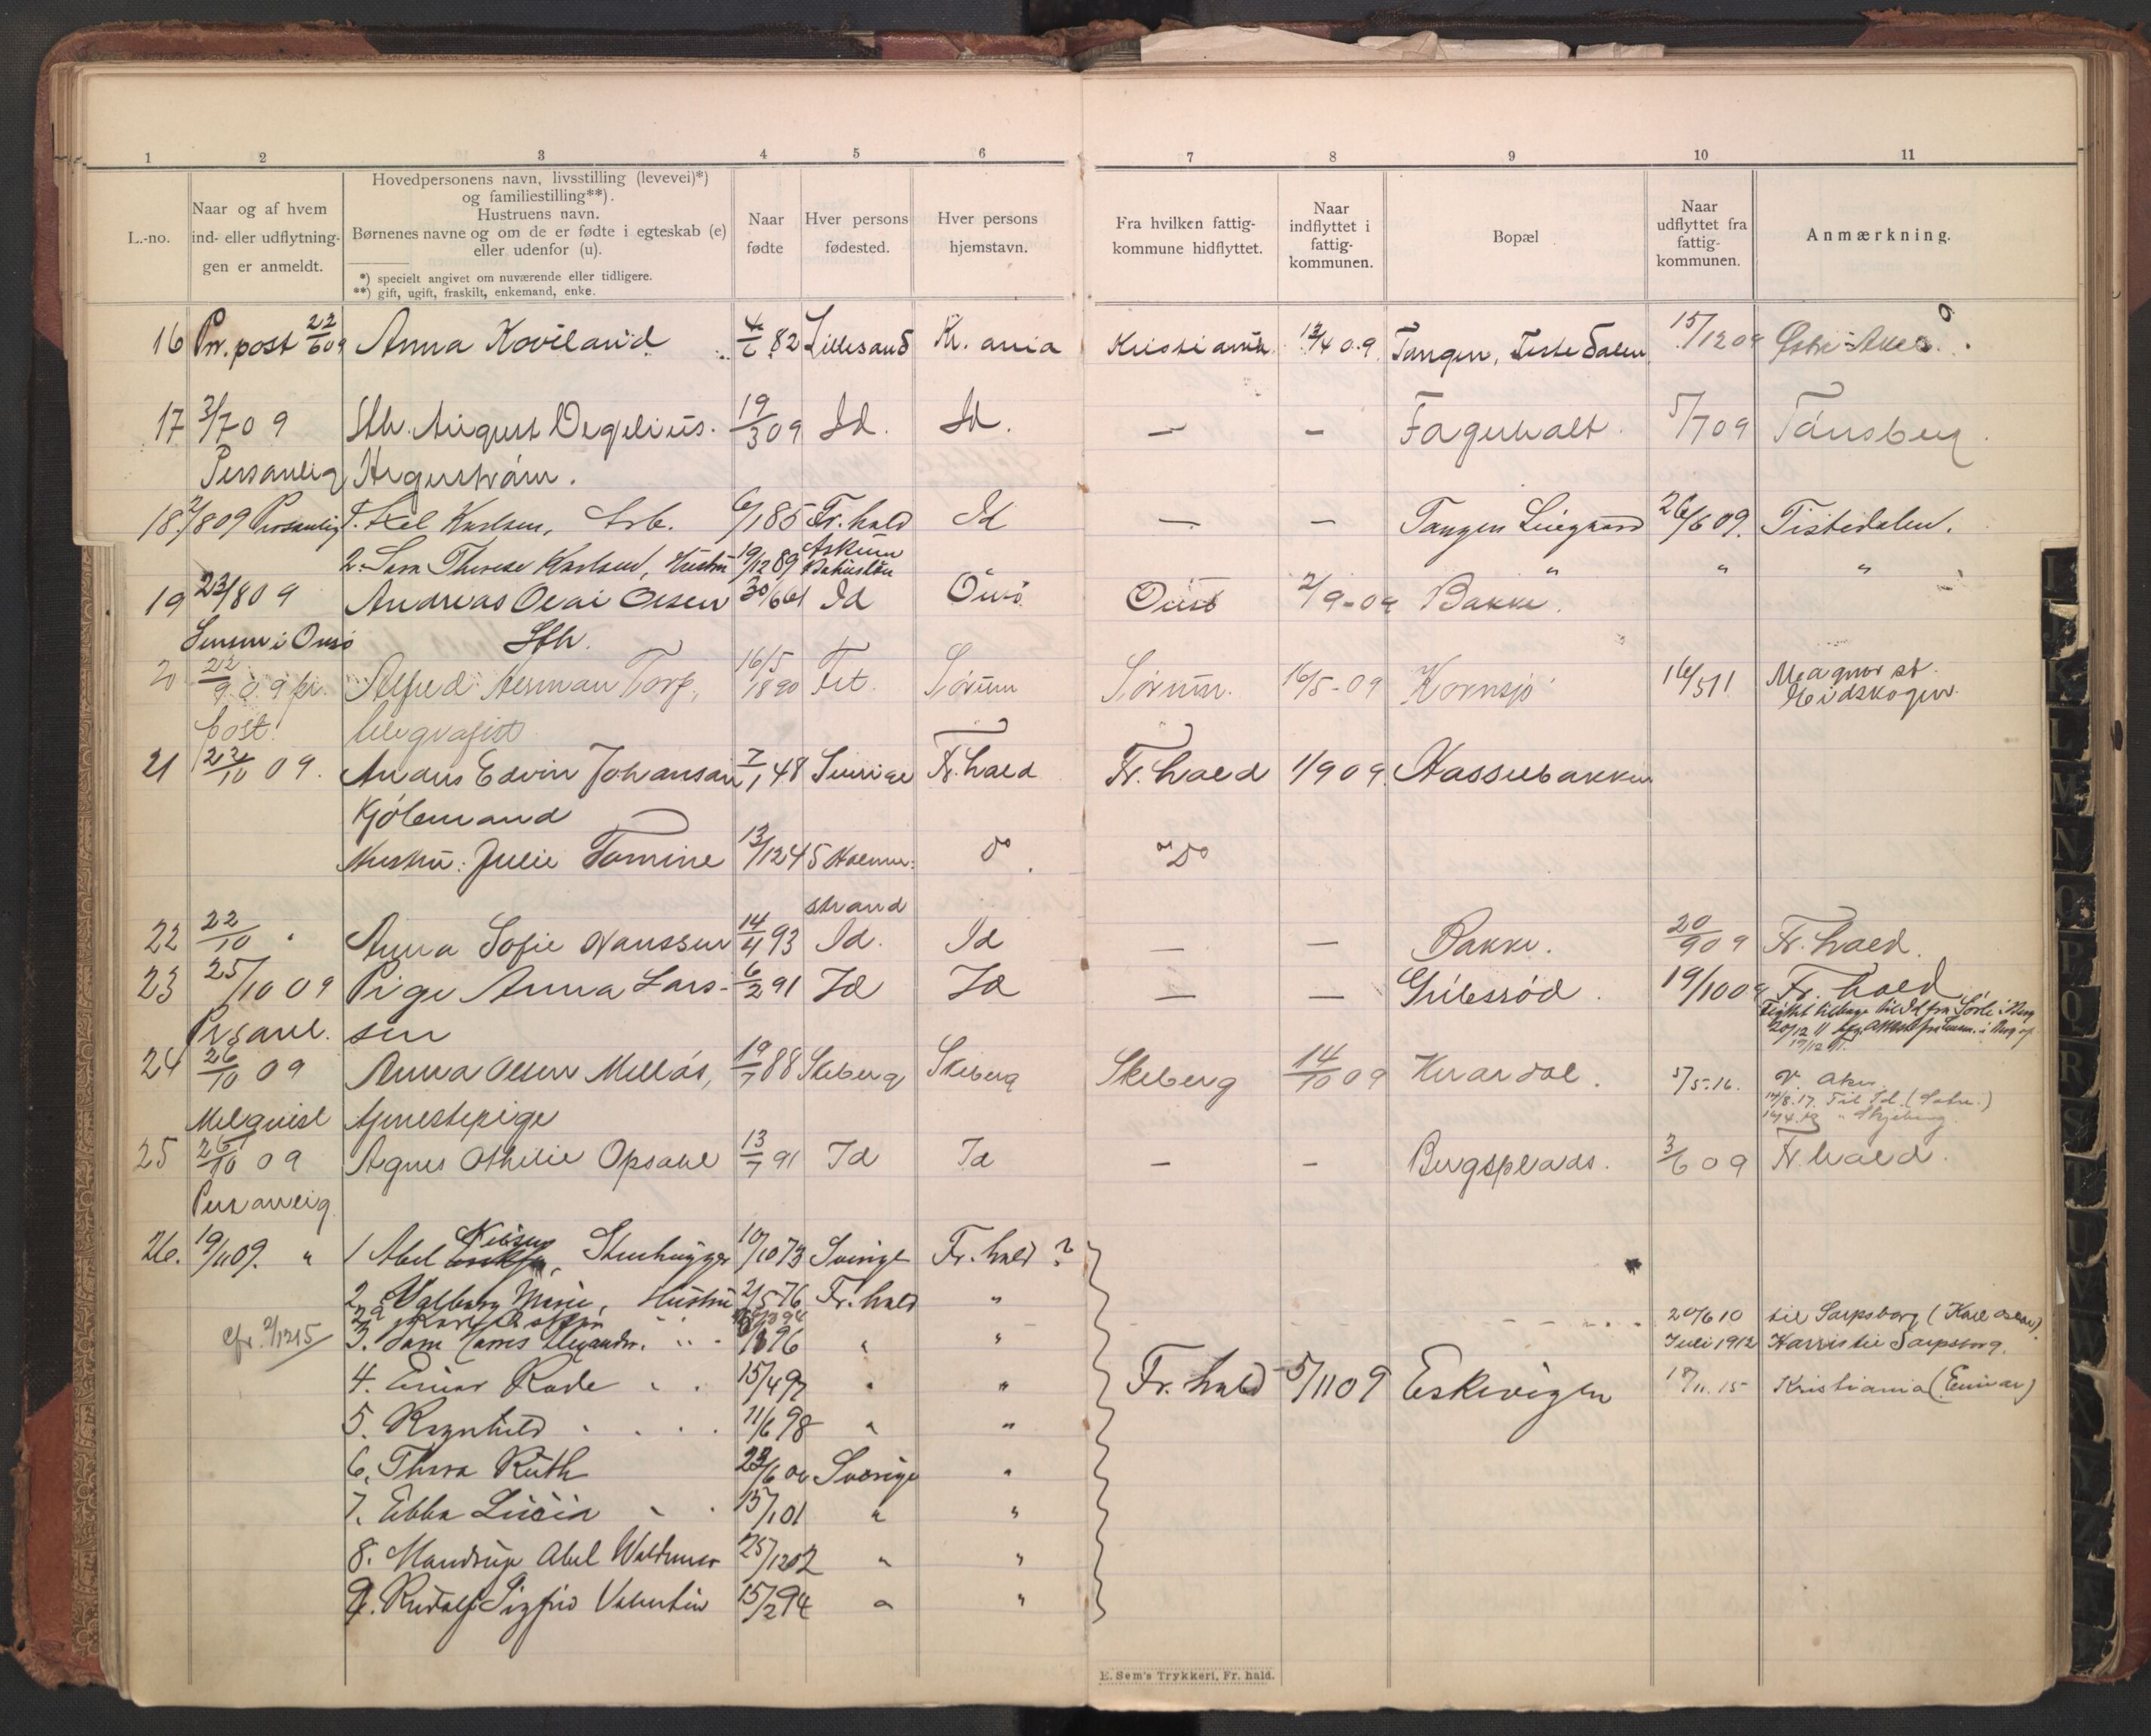 1 2 3 4 5 6 7 8 9 10 11
L.-no.
Naar og af hvem
ind- eller udflytnin-
gen er anmeldt.
Hovedpersonens navn, livsstilling (levevei)*)
og familiestilling**).
Hustruens navn.
Børnenes navne og om de er fødte i egteskab (e)
eller udenfor (u).
*) specielt angivet om nuværende eller tidligere.
**) gift, ugift, fraskilt, enkemand, enke.
Naar
fødte
Hver persons
fødested.
Hver persons
hjemstavn.
Fra hvilken fattig-
kommune hidflyttet.
Naar
indflyttet i
fattig-
kommunen.
Bopæl
Naar
udflyttet fra
fattig-
kommunen.
Anmærkning.
16 Pr. post 22/6 09 Anna Koviland 82 Lillesand Kr. ania Kristiania 13/4 09 Tangen, Tistedalen 15/12 09 Østre Aker
17 3/7 09 Sth. August Degelius 19/3 09 Id. Id. — — Fagerholt 5/7 09 Tønsberg
Personlig Hegerstrøm.
18 2/8 09 Personlig 1. Axel Karlsen, Arb. 6/1 85 Fr. hald Id — — Tangen Liegaard 26/6 09. Tistedalen.
2. Sara Therese Karlsen, Hustru 19/12 89 Askum Bahuslän " " "
19 23/8 09 Andreas Olai Olsen 30/6 61 Id Onsø Onsø 2/9 - 09 Bakke.
Lensm. i Onsø Sth.
20 22/9 09 pr. Alfred Herman Torp, 16/5 1890 Fet. Sørum Sørum. 16/5 - 09 Kornsjø 16/5 11 Magnor st.
post. telegrafist Eidskogen.
21 22/10 09. Anders Edvin Johansen 7/1 48 Sverige Fr. hald Fr. hald 1/9 09 Hasselbakken
Kjøbmand
Hustru: Julie Tomine 13/12 45 Holme- do "Do
strand
22 22/10 " Anna Sofie Hanssen 14/4 93 Id. Id — — Bakke. 20/9 09 Fr. hald.
23 25/10 09 Pige Anna Lars- 6/2 91 Id Id — — Gribsrød. 19/10 09 Fr. hald
Personl. sen Flyttet tilbage til Id fra Sørli i Berg
20/12 11
24 26/10 09 Anna Olsen Mellås, 19/7 88 Skeberg Skeberg Skeberg 14/10 09 Knardal. 5/5 - 16. V. Aker.
Melqvist tjenestepige 14/8.17. Til Id.
" Skjeberg
25 26/10 09 Agnes Othilie Opsahl 13/7 91 Id Id — — Bergsplads. 3/6 09 Fr. hald.
Personlig
26. 19/11 09. " 1 Abel Nilsen, Stenhugger 10/10 73 Sverige Fr. hald ?
2. Valborg Marie, Hustru 21/5 76 Fr. hald "
2a Karl Oskar 20/6 10 til Sarpsborg (Karl Oskar)
cfr. 2/12 15 3. Sam Harris Alexander. 96 " " Juli 1912 Harris til Sarpsborg.
4. Einar Rade 15/4 97 " " Fr. hald 5/11 09 Eskevigen 18/11. 15 Kristiania (Einar)
5. Ragnhild 11/6 98 " "
6. Thora Ruth 22/6 00 Sverige "
7. Ebba Lucia 15/1 01 " "
8. Mandrup Abel Waldemar 25/12 02 " "
9. Rudolf Sigfrid Valentin 15/2 94 " "
E. Sem's Trykkeri, Fr. hald.
L M N O P Q R S T U